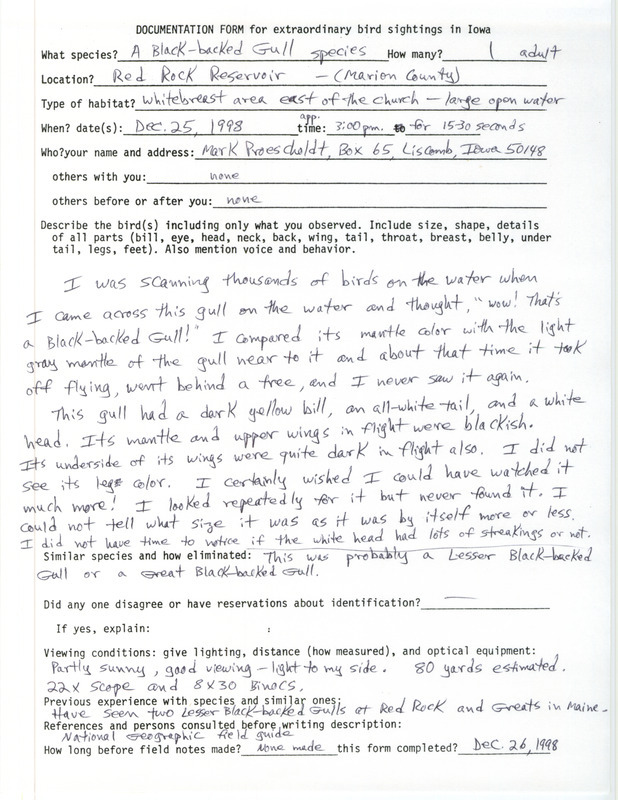 DOCUMENTATION FORM for extraordinary bird sightings in Iowa
What species? A Black-backed Gull species How many? 1 adult
Location? Red Rock Reservoir - (Marion County)
Type of habitat? Whitebreast area east of the church - large open water
When? date(s): Dec. 25, 1998 app. time: 3:00 p.m. for 15-30 seconds
Who? your name and address: Mark Proescholdt, Box 65, Liscomb, Iowa 50148
others with you: none
others before or after you: none
Describe the bird(s) including only what you observed. Include size, shape, details
of all parts (bill, eye, head, neck, back, wing, tail, throat, breast, belly, under
tail, legs, feet). Also mention voice and behavior.
I was scanning thousands of birds on the water when
I came across this gull on the water and thought, "wow! That's
a Black-backed Gull!" I compared its mantle color with the light
gray mantle of the gull near to it and about that time it took
off flying, went behind a tree, and I never saw it again.
This gull had a dark yellow bill, an all-white tail, and a white
head. Its mantle and upper wings in flight were blackish.
Its underside of its wings were quite dark in flight also. I did not
see its legs color. I certainly wished I could have watched it
much more! I looked repeatedly for it but never found it. I
could not tell what size it was as it was by itself more or less.
I did not have time to notice if the white head had lots of streakings or not.
Similar species and how eliminated: This was probably a Lesser Black-backed
Gull or a Great Black-backed Gull.
Did any one disagree or have reservations about identification? —
If yes, explain:
Viewing conditions: give lighting, distance (how measured), and optical equipment:
Partly sunny, good viewing - light to my side. 80 yards estimated.
22X scope and 8X30 Binocs.
Previous experience with species and similar ones:
Have seen two Lesser Black-backed Gulls at Red Rock and Greats in Maine.
References and persons consulted before writing description:
National Geographic field guide
How long before field notes made? None made this form completed? Dec. 26, 1998